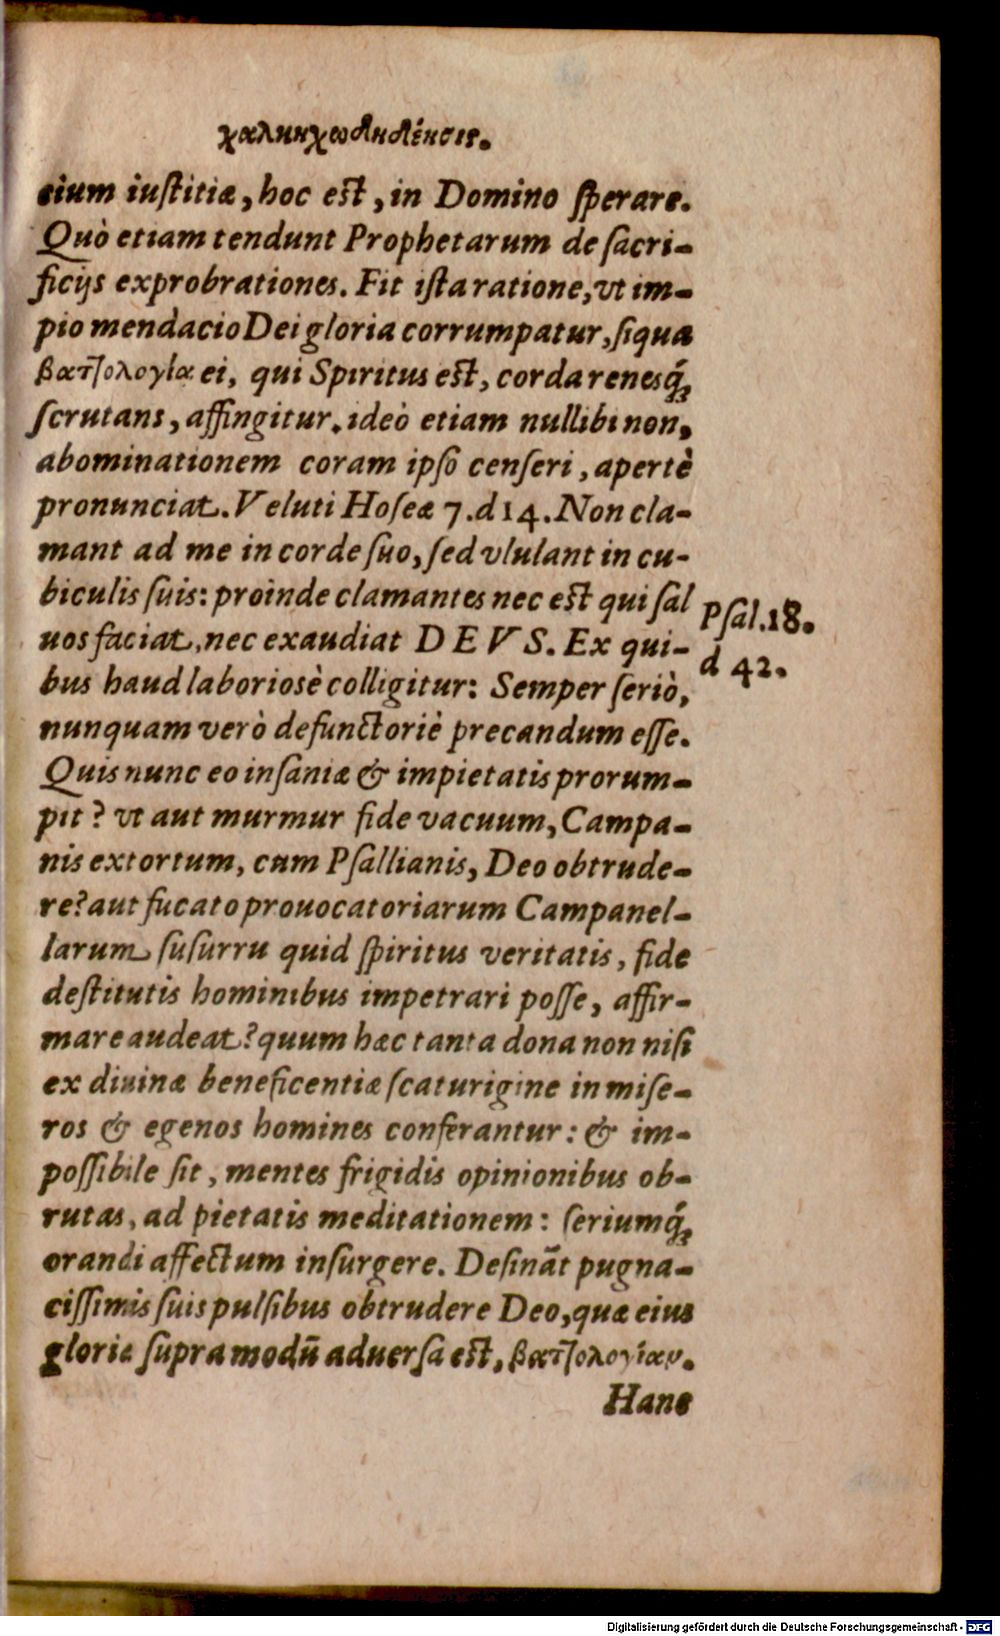 cium iustitiæ, hoc est, in Domino sperare.
Quò etiam tendunt Prophetarum de sacri-
ficijs exprobrationes. Fit ista ratione, vt im-
pio mendacio Dei gloria corrumpatur, siqua
βατ]ολογία ei, qui Spiritus est, corda renesq́;
scrutans, affingitur. ideò etiam nullibi non,
abominationem coram ipso censeri, apertè
pronunciat. Veluti Hoseæ 7. d 14. Non cla-
mant ad me in corde suo, sed vlulant in cu-
biculis suis: proinde clamantes nec est qui sal
uos faciat, nec exaudiat DEVS. Ex qui-
Psal. 18.
d 42.
bus haud laboriosè colligitur: Semper seriò,
nunquam verò defunctoriè precandum esse.
Quis nunc eo insaniæ & impietatis prorum-
pit? vt aut murmur fide vacuum, Campa-
nis extortum, cum Psallianis, Deo obtrude-
re? aut fucato prouocatoriarum Campanel-
larum susurru quid spiritus veritatis, fide
destitutis hominibus impetrari posse, affir-
mare audeat? quum hæc tanta dona non nisi
ex diuinæ beneficentiæ scaturigine in mise-
ros & egenos homines conferantur: & im-
possibile sit, mentes frigidis opinionibus ob-
rutas, ad pietatis meditationem: seriumq́;
orandi affectum insurgere. Desinãt pugna-
cissimis suis pulsibus obtrudere Deo, quæ eius
gloriæ supra modũ aduersa est, βατ]ολογίαν.
Hanc
Digitalisierung gefördert durch die Deutsche Forschungsgemeinschaft - DFG